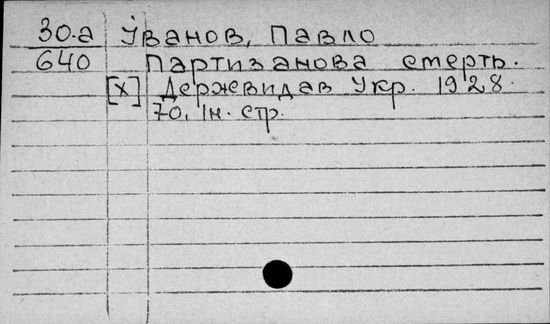 30.а Іванов, Павло
640 Партизанова смерть.
[X] Держвидав Укр. 1928.
70, Ін. стр.